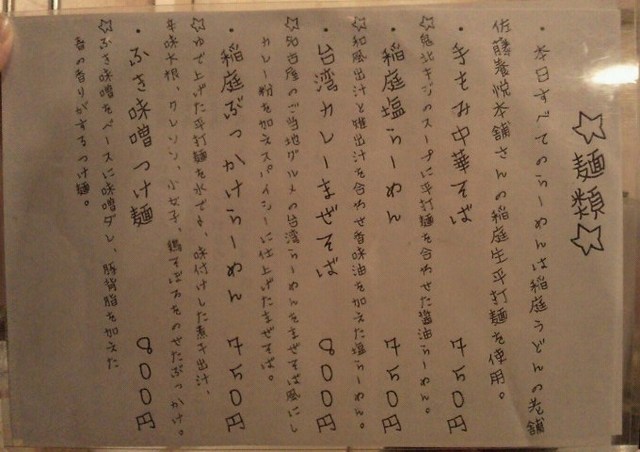 ☆麺類☆
・本日すべてのらーめんは稲庭うどんの老舗
佐藤養悦本舗さんの稲庭生平打麺を使用。
・手もみ中華そば 750円
☆鬼北キジのスープに平打麺を合わせた醤油らーめん。
・稲庭塩らーめん 750円
☆和風出汁と雉出汁を合わせ香味油を加えた塩らーめん。
・台湾カレーまぜそば 800円
☆名古屋のご当地グルメの台湾らーめんをまぜそば風にし
カレー粉を加えスパイシーに仕上げたまぜそば。
・稲庭ぶっかけらーめん 750円
☆ゆで上げた平打麺を氷で〆、味付けした煮干出汁、
辛味大根、クレソン、小女子、鶏そぼろをのせたぶっかけ。
・ふき味噌つけ麺 800円
☆ふき味噌をベースに味噌ダレ、豚背脂を加えた
春の香りがするつけ麺。